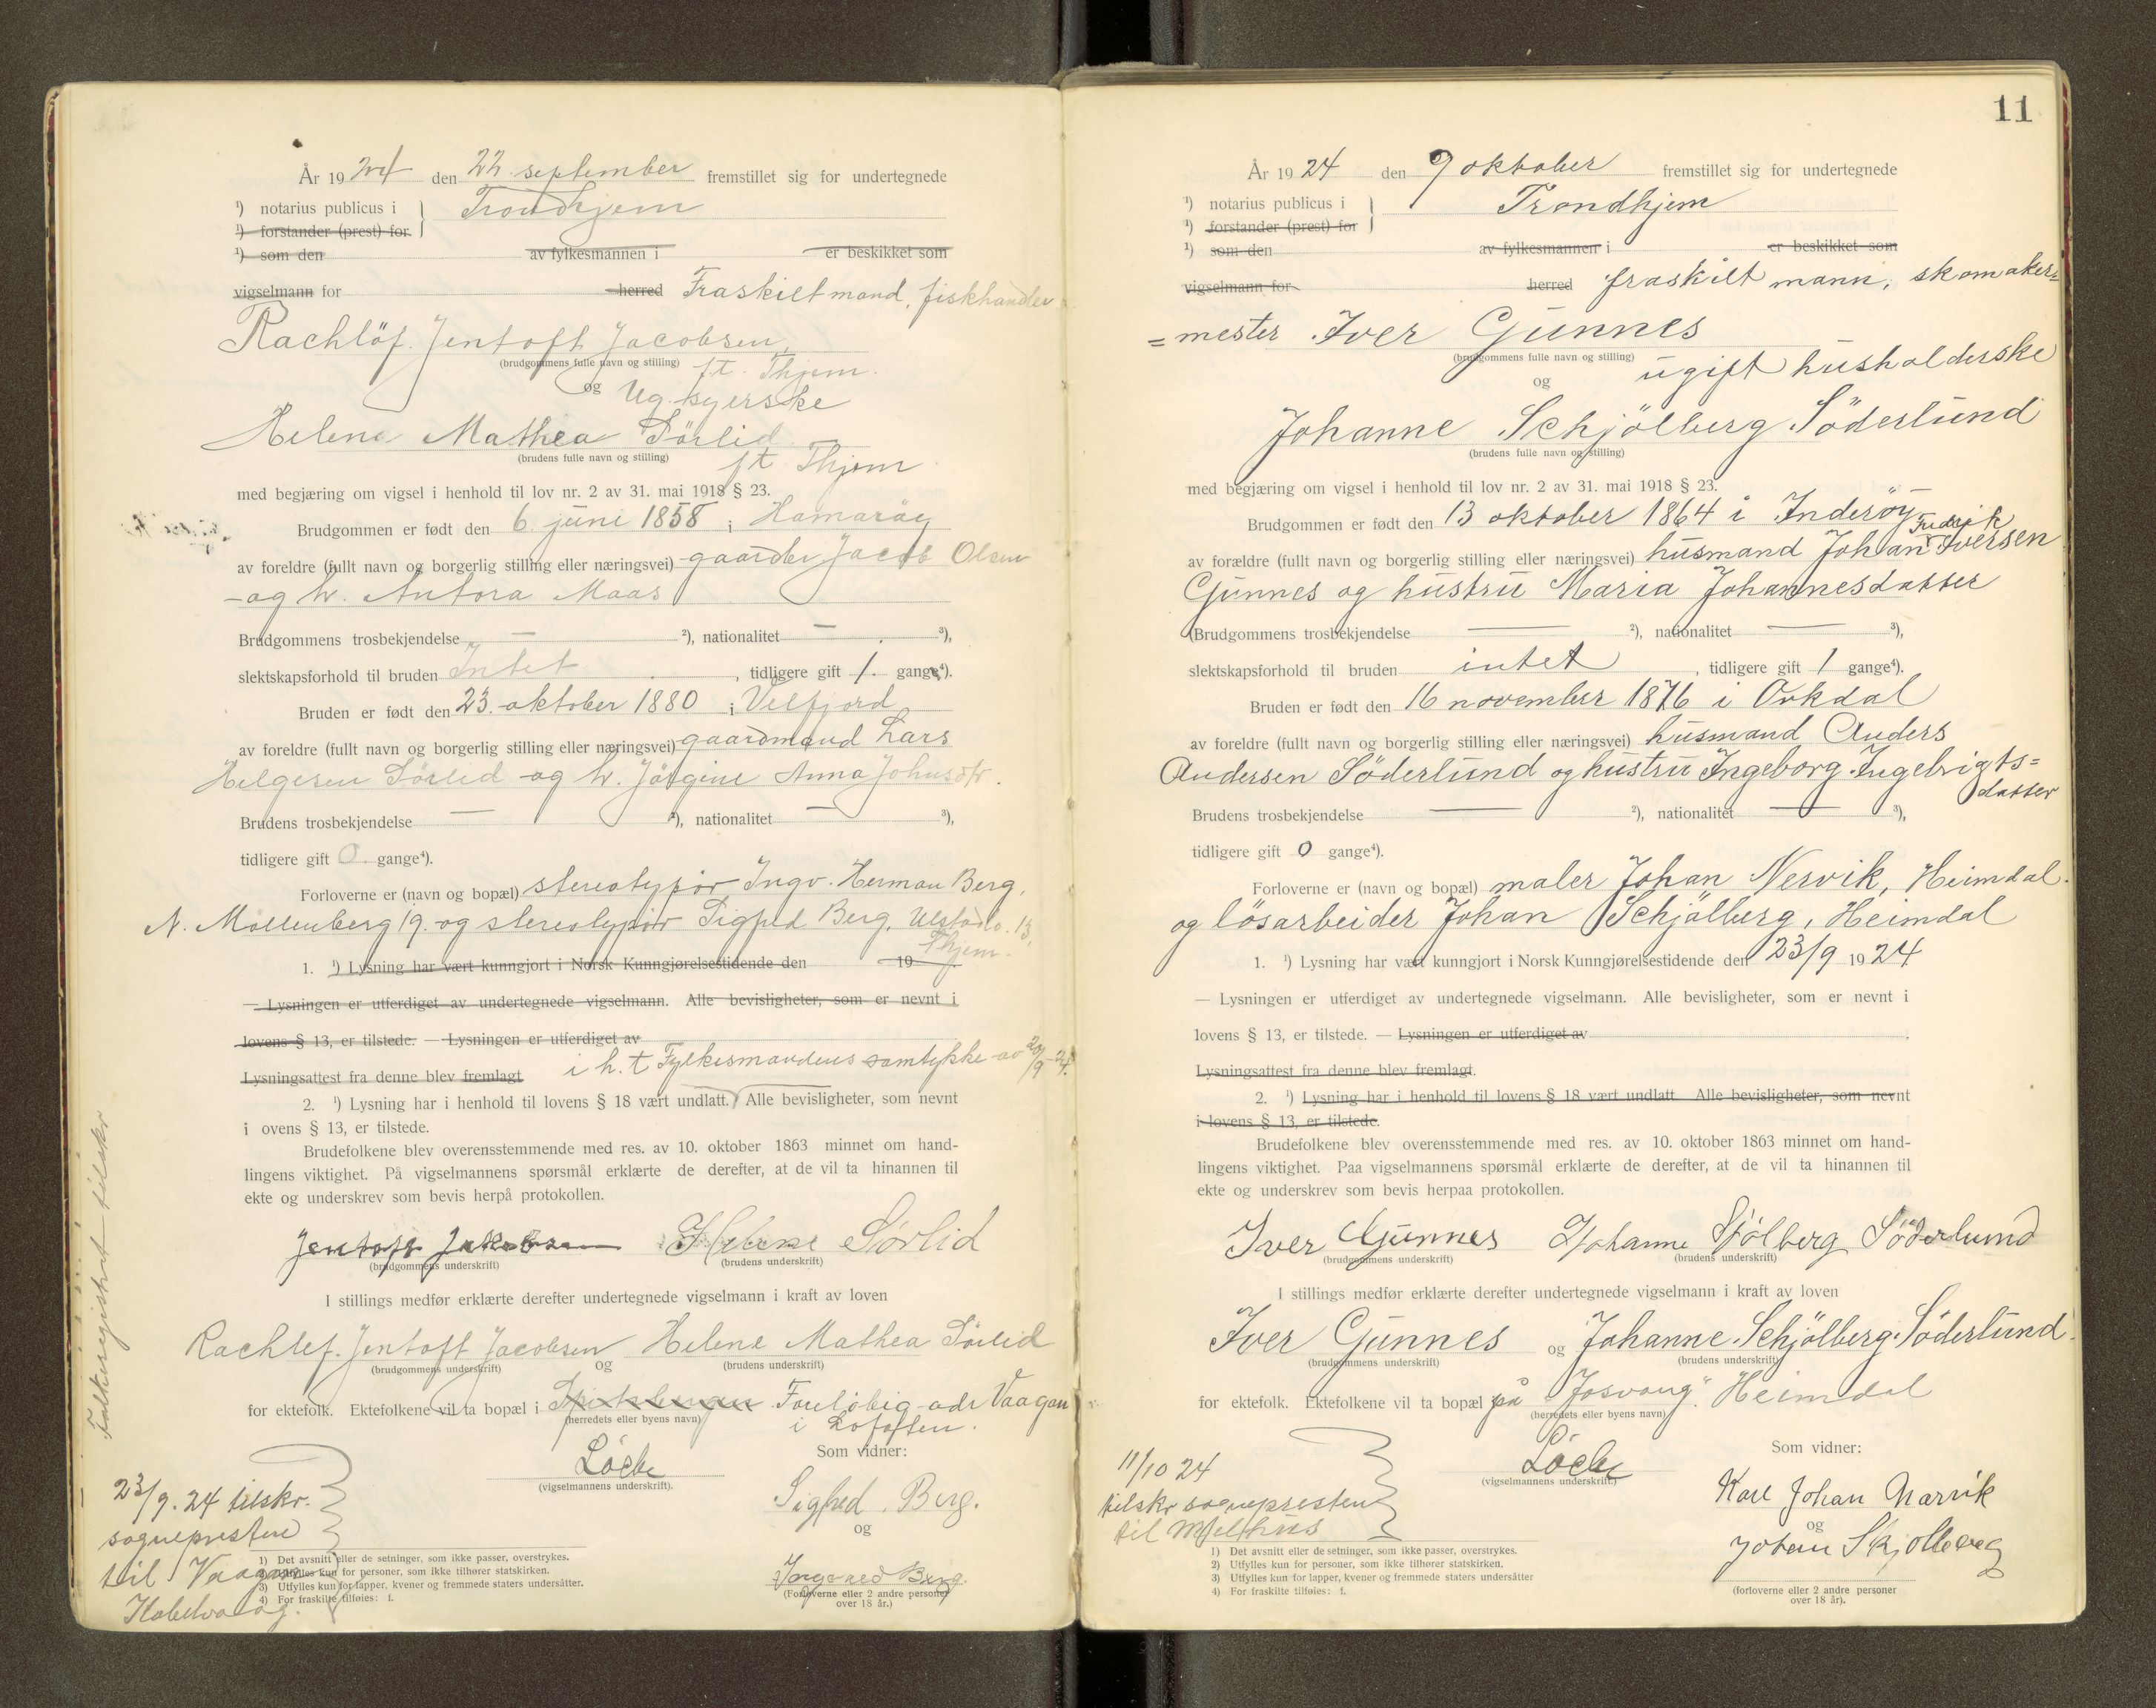 År 1924 den 22 september fremstillet sig for undertegnede
¹) notarius publicus i } Trondhjem
¹) forstander (prest) for
¹) som den av fylkesmannen i er beskikket som
vigselmann for herred Fraskilt mand, fiskhandler
Rachlöf Jentoft Jacobsen,
(brudgommens fulle navn og stilling) ft. Thjem.
og Ug. syerske
Helene Mathea Sörlid
(brudens fulle navn og stilling) ft Thjem
med begjæring om vigsel i henhold til lov nr. 2 av 31. mai 1918 § 23.
Brudgommen er født den 6 juni 1858 i Hamaröy
av foreldre (fullt navn og borgerlig stilling eller næringsvei) gaardbr Jacob Olsen
og h. Antora Maas
Brudgommens trosbekjendelse — ²), nationalitet — ³),
slektskapsforhold til bruden Intet, tidligere gift 1. gange⁴).
Bruden er født den 23. oktober 1880 i Velfjord
av foreldre (fullt navn og borgerlig stilling eller næringsvei) gaardmand Lars
Helgesen Sörlid og h. Jörgine Anna Johnsdtr.
Brudens trosbekjendelse — ²), nationalitet — ³),
tidligere gift 0. gange⁴).
Forloverne er (navn og bopæl) stereotypör Ingv. Herman Berg,
N. Möllenberg 19. og stereotypör Sigfred Berg, 13,
Thjem.
1. ¹) Lysning har vært kunngjort i Norsk Kunngjørelsestidende den 19
— Lysningen er utferdiget av undertegnede vigselmann. Alle bevisligheter, som er nevnt i
lovens § 13, er tilstede. — Lysningen er utferdiget av
Lysningsattest fra denne blev fremlagt i h. t Fylkesmandens samtykke av 20/9-24.
2. ¹) Lysning har i henhold til lovens § 18 vært undlatt. Alle bevisligheter, som nevnt
i ovens § 13, er tilstede.
Brudefolkene blev overensstemmende med res. av 10. oktober 1863 minnet om hand-
lingens viktighet. På vigselmannens spørsmål erklærte de derefter, at de vil ta hinannen til
ekte og underskrev som bevis herpå protokollen.
Jentoft Jakobsen Helene Sørlid
(brudgommens underskrift) (brudens underskrift)
I stillings medfør erklærte derefter undertegnede vigselmann i kraft av loven
Rachlef Jentoft Jacobsen Helene Mathea Sörlid
(brudgommens underskrift) og (brudens underskrift)
for ektefolk. Ektefolkene vil ta bopæl i Foreløbig adr Vaagan
(herredets eller byens navn) i Lofoten.
Löche
(vigselmannens underskrift).
Som vidner:
Sigfred Berg.
og
Ingvald Berg.
(Forloverne eller 2 andre personer
over 18 år.)
Folkeregistret tilskr
23/9. 24 tilskr.
sogneprsten
til Vaagan
Kabelvaag.
1) Det avsnitt eller de setninger, som ikke passer, overstrykes.
2) Utfylles kun for personer, som ikke tilhører statskirken.
3) Utfylles kun for lapper, kvener og fremmede staters undersåtter.
4) For fraskilte tilføies: f.
11
År 1924 den 9 oktober fremstillet sig for undertegnede
¹) notarius publicus i } Trondhjem
¹) forstander (prest) for
¹) som den av fylkesmannen i er beskikket som
vigselmann for herred fraskilt mann, skomaker=
=mester Iver Gunnes
(brudgommens fulle navn og stilling)
og ugift husholderske
Johanne Schjölberg Söderlund
(brudens fulle navn og stilling)
med begjæring om vigsel i henhold til lov nr. 2 av 31. mai 1918 § 23.
Brudgommen er født den 13 oktober 1864 i Inderöy
av forældre (fullt navn og borgerlig stilling eller næringsvei) husmand Johan Fredrik Iversen
Gunnes og hustru Maria Johannesdatter
Brudgommens trosbekjendelse — ²), nationalitet — ³),
slektskapsforhold til bruden intet, tidligere gift 1 gange⁴).
Bruden er født den 16 november 1876 i Orkdal
av foreldre (fullt navn og borgerlig stilling eller næringsvei) husmand Anders
Andersen Söderlund og hustru Ingeborg Ingebrigts=
datter
Brudens trosbekjendelse — ²), nationalitet — ³),
tidligere gift 0 gange⁴).
Forloverne er (navn og bopæl) maler Johan Nervik, Heimdal.
og lösarbeider Johan Schjölberg, Heimdal
1. ¹) Lysning har vært kunngjort i Norsk Kunngjørelsestidende den 23/9 1924
— Lysningen er utferdiget av undertegnede vigselmann. Alle bevisligheter, som er nevnt i
lovens § 13, er tilstede. — Lysningen er utferdiget av
Lysningsattest fra denne blev fremlagt.
2. ¹) Lysning har i henhold til lovens § 18 vært undlatt. Alle bevisligheter, som nevnt
i lovens § 13, er tilstede.
Brudefolkene blev overensstemmende med res. av 10. oktober 1863 minnet om hand-
lingens viktighet. Paa vigselmannens spørsmål erklærte de derefter, at de vil ta hinannen til
ekte og underskrev som bevis herpaa protokollen.
Iver Gunnes Johanne Sjölberg Söderlund
(brudgommens underskrift) (brudens underskrift)
I stillings medfør erklærte derefter undertegnede vigselmann i kraft av loven
Iver Gunnes og Johanne Schjölberg Söderlund
(brudgommens underskrift) (brudens underskrift)
for ektefolk. Ektefolkene vil ta bopæl på "Josvang" Heimdal
(herredets eller byens navn)
Löche
(vigselmannens underskrift)
Som vidner:
Karl Johan Nærvik
og
Johan Skjolberg
(forloverne eller 2 andre personer
over 18 år).
11/10 24
tilskr sognepresten
til Melhus
1) Det avsnitt eller de setninger, som ikke passer, overstrykes.
2) Utfylles kun for personer, som ikke tilhører statskirken.
3) Utfylles kun for lapper, kvener og fremmede staters undersåtter
4) For fraskilte tilføies: f.